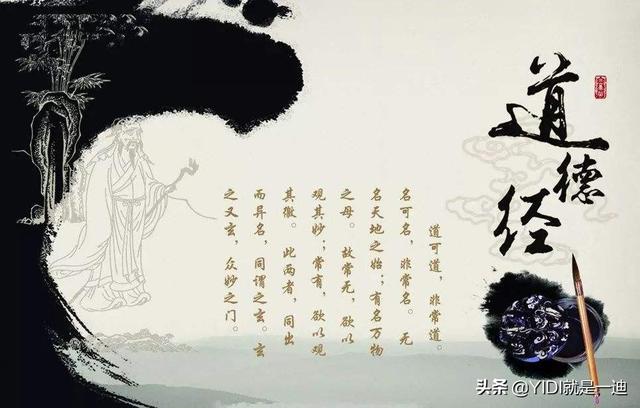 道德经
道可道，非常道。
名可名，非常名。 无
名天地之始；有名万物
之母。 故常无，欲以
观其妙；常有，欲以观
其徼。 此两者，同出
而异名，同谓之玄。玄
之又玄，众妙之门。
头条 @YIDI就是一迪